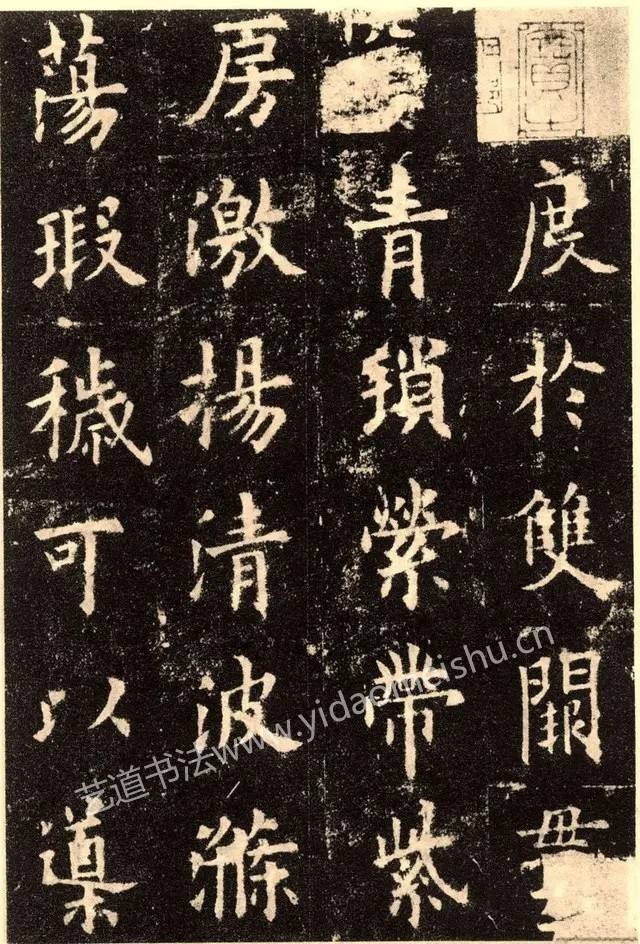 度於雙闕
青瑣縈帶紫
房激揚清波滌
蕩瑕穢可以導
艺道书法www.yidaomeishu.cn